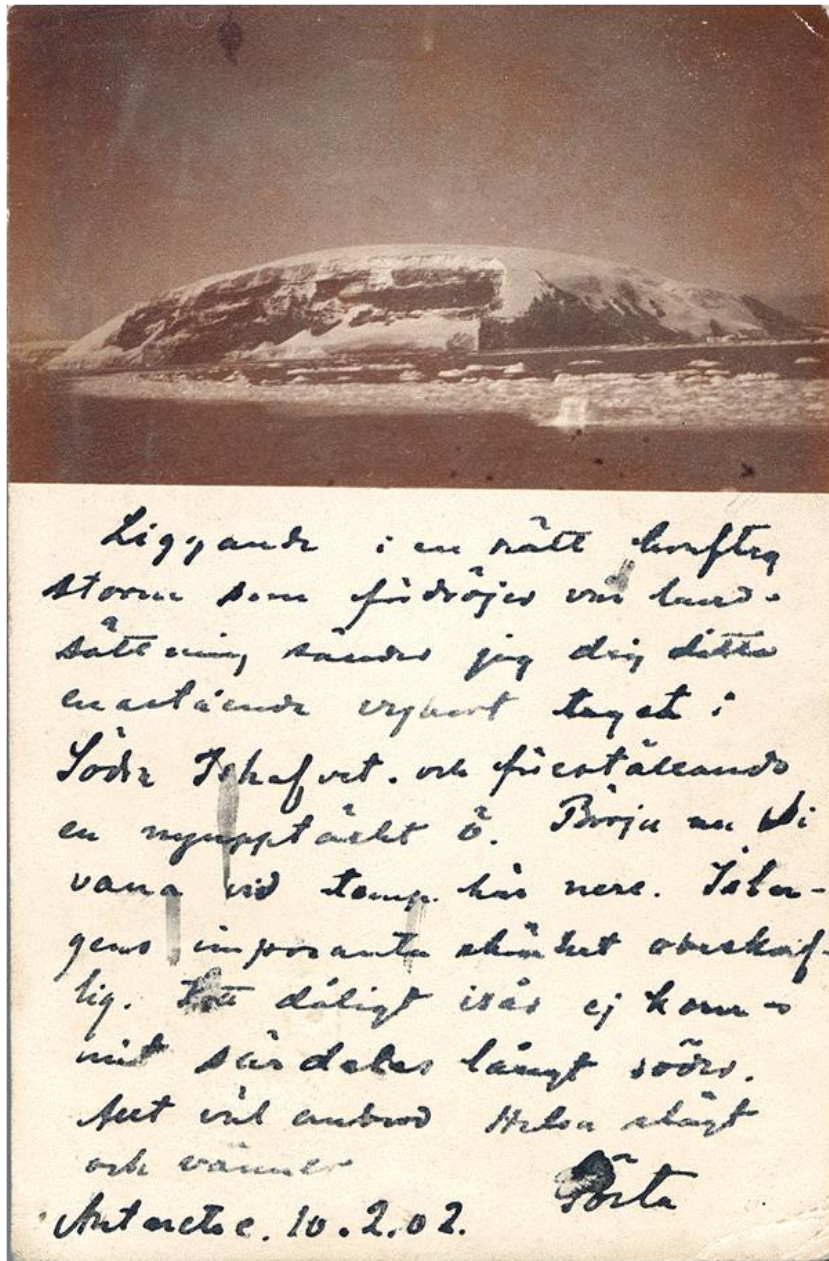 Liggande i en rätt häftig
storm som fördröjer vår land-
sättning, sänder jag dig detta
enastående vykort taget i
Södra Ishafvet. och föreställande
en nyupptäckt ö. Börja nu bli
vana vid temp. här nere. Isber-
gens imposanta skönhet obeskrif-
lig. Ett dåligt isår ej kom-
mit särdeles långt söder.
Allt väl ombord Helsa släkt
och vänner
Gösta
Antarctic. 10.2.02.